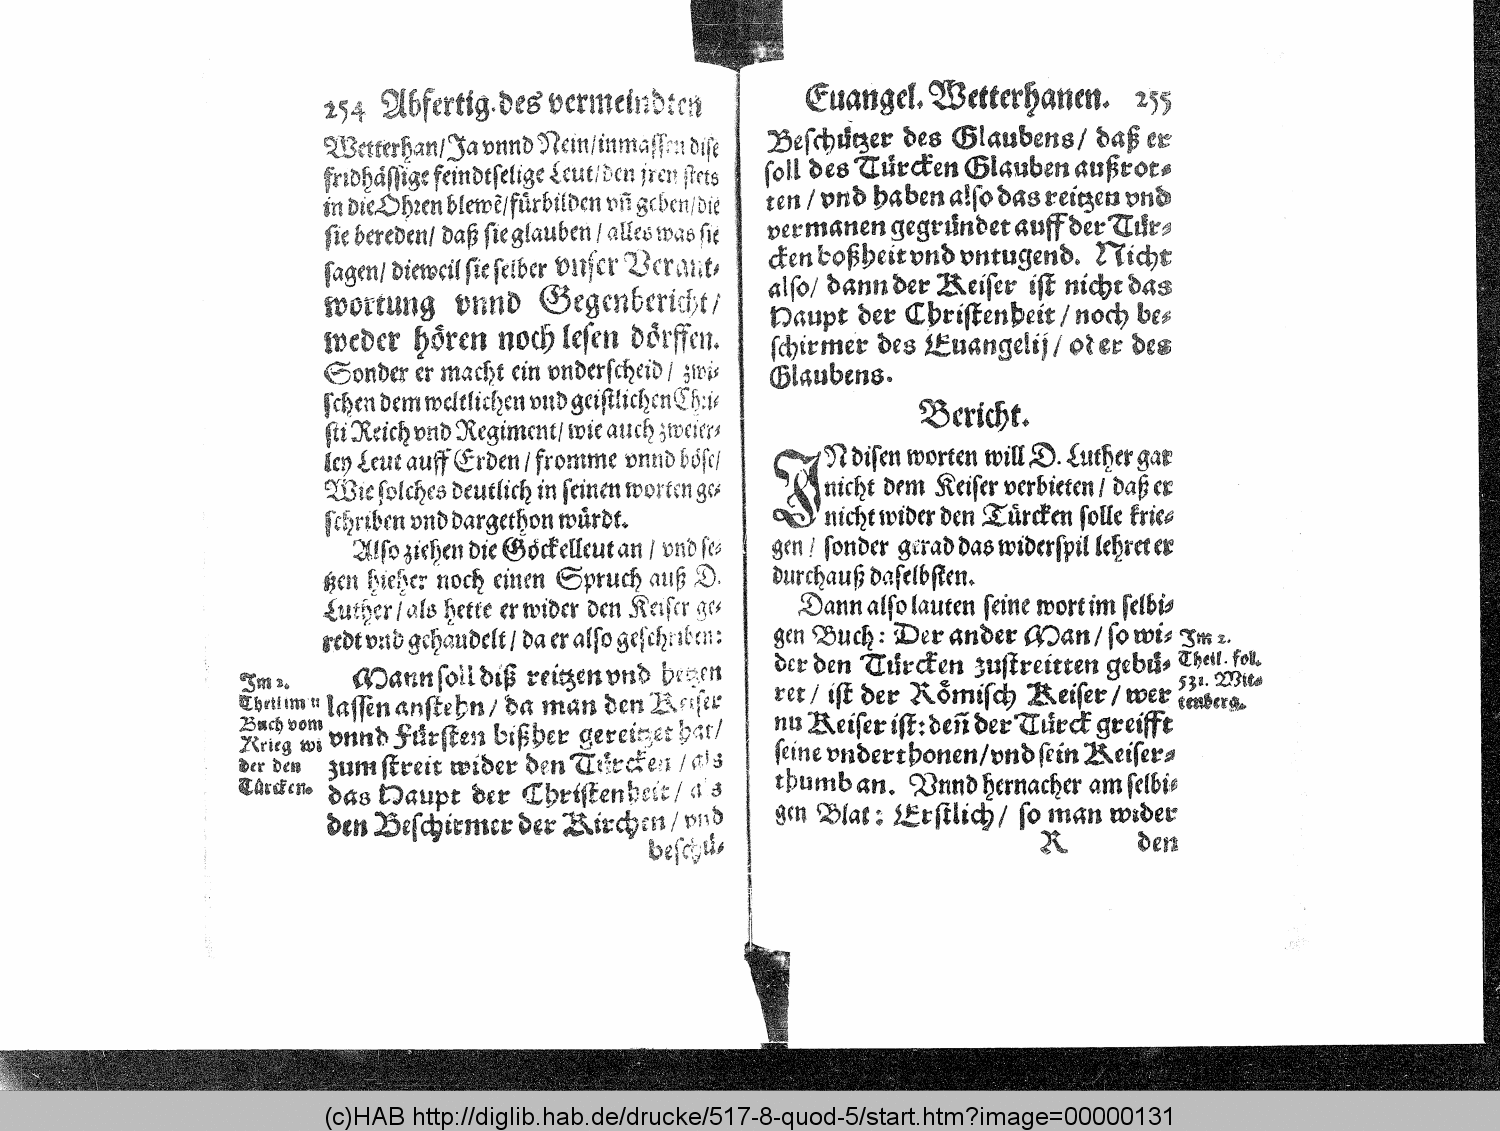 254 Abfertig. des vermeindten
Wetterhan/ Ja vnnd Nein/ inmassen dise
fridhässige feindtselige Leut/ den jren stets
in die Ohren blewẽ/ fürbilden vñ geben/ die
sie bereden/ daß sie glauben / alles was sie
sagen/ dieweil sie selber vnser Verant⸗
wortung vnnd Gegenbericht/
weder hören noch lesen dörffen.
Sonder er macht ein vnderscheid / zwi⸗
schen dem weltlichen vnd geistlichen Chri⸗
sti Reich vnd Regiment/ wie auch zweier⸗
ley Leut auff Erden / fromme vnnd böse/
Wie solches deutlich in seinen worten ge⸗
schriben vnd dargethon würdt.
Also ziehen die Göckelleut an / vnd se⸗
tzen hieher noch einen Spruch auß D.
Luther / als hette er wider den Keiser ge⸗
redt vnd gehandelt / da er also geschriben:
Mann soll diß reitzen vnd hetzen
lassen anstehn / da man den Keiser
vnnd Fürsten bißher gereitzet hat/
zum streit wider den Türcken / als
das Haupt der Christenheit / als
den Beschirmer der Kirchen / vnd
beschü⸗
Im 2.
Theil im
Buch vom
Krieg wi
der den
Türcken.
Euangel. Wetterhanen. 255
Beschützer des Glaubens / daß er
soll des Türcken Glauben außrot⸗
ten / vnd haben also das reitzen vnd
vermanen gegründet auff der Tür⸗
cken boßheit vnd vntugend. Nicht
also/ dann der Keiser ist nicht das
Haupt der Christenheit / noch be⸗
schirmer des Euangelij / oder des
Glaubens.
Bericht.
IN disen worten will D. Luther gar
nicht dem Keiser verbieten / daß er
nicht wider den Türcken solle krie⸗
gen / sonder gerad das widerspil lehret er
durchauß daselbsten.
Dann also lauten seine wort im selbi⸗
gen Buch: Der ander Man / so wi⸗
der den Türcken zustreitten gebü⸗
ret / ist der Römisch Keiser / wer
nu Keiser ist: deñ der Türck greifft
seine vnderthonen/ vnd sein Keiser⸗
thumb an. Vnnd hernacher am selbi⸗
gen Blat: Erstlich / so man wider
R den
Im 2.
Theil. fol.
531. Wit⸗
tenberg.
(c)HAB http://diglib.hab.de/drucke/517-8-quod-5/start.htm?image=00000131